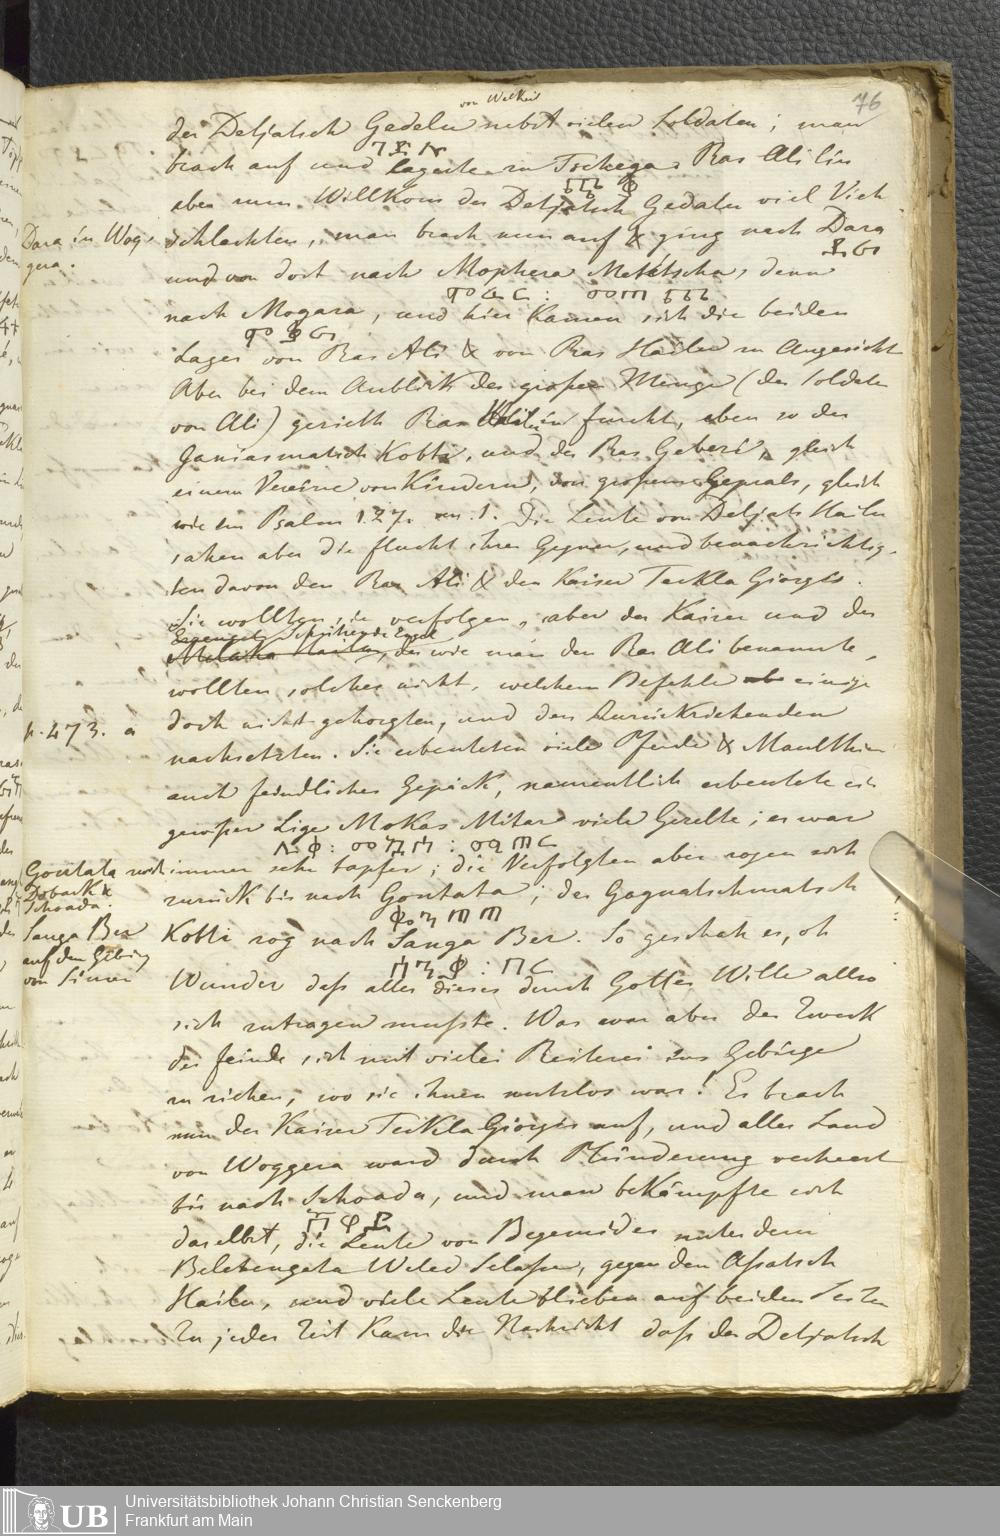 76
von Welkeit
der Detjatsch Gedelu nebst vielen Soldaten; man
brach auf und lagerte in Tschega. Ras Ali ließ
aber zum Willkom des Detjatsch Gedalu viel Vieh
schlachten, man brach nun auf & ging nach Dara
Dara in Wog-
gera.
und von dort nach Mophera Metätscha, dann
nach Mogara, und hier kamen sich die beiden
Lager von Ras Ali & von Ras Hailu in Angesicht
Aber bei dem Anblick der großen Menge (der Soldaten
von Ali) gerieth Ras Hailu in Furcht, eben so der
Gasiasmatsch Kobti, und der Ras Geberé, gleich
einem Vereine von Kindern, von großem Geprals, gleich
wie im Psalm 127. vers. 1. Die Leute von Detjats Hailu
sahen aber die Flucht ihrer Gegner, und benachrichtig-
ten davon den Ras Ali & den Kaiser Teckla Giorgis.
Sie wollten sie verfolgen, aber der Kaiser und der
Schützende Engel
der wie man den Ras Ali benannte,
wollten solches nicht, welchem Befehle einige
p. 473. a
doch nicht gehorgten, und den Zurückziehenden
nachsetzten. Sie erbeuteten viele Pferde & Maulthiere
auch feindliches Gepäck, namentlich erbeutete ein
gewisser Lige Mokas Mitar viele Gezelte; er war
immer sehr tapfer; die Verfolgten aber zogen sich
zurück bis nach Gontata; der Gagnatschmatsch
Gontata noch
Doback &
Schoada.
Kobti zog nach Sanga Ber. So geschah es, oh
Sanga Ber
auf dem Gebirg
von Simen
Wunder daß alles dieses durch Gottes Wille also
sich zutragen mußte. Was war aber der Zweck
der Feinde sich mit vieler Reiterei ins Gebürge
zu ziehen, wo sie ihnen nutzlos war! Es brach
nun der Kaiser Teckla Giorgis auf, und alles Land
von Woggera ward durch Plünderung verheert
bis nach Schoada, und man bekämpfte sich
daselbst, die Leute von Begemider unter dem
Beletengeta Weled Selasse, gegen den Assatsch
Hailu, und viele Leute blieben auf beiden Seiten
Zu jeder Zeit kam die Nachricht daß der Detjatsch
Universitätsbibliothek Johann Christian Senckenberg
Frankfurt am Main
UB